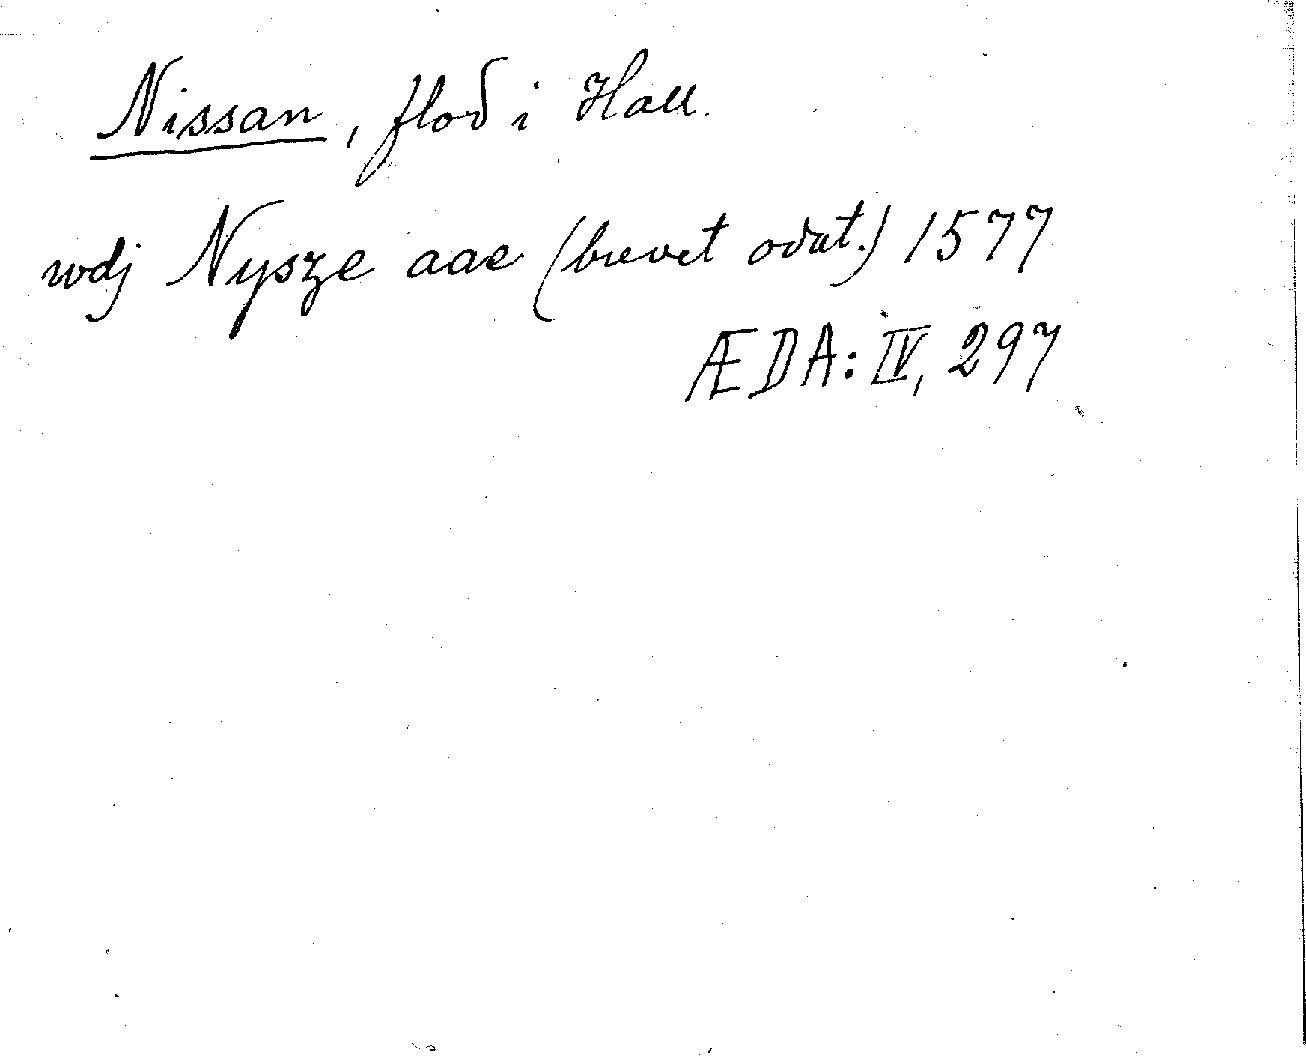 Nissan, flod i Hall.
wdj Nysze aae (brevet odat.) 1577
ÆDA: IV, 297